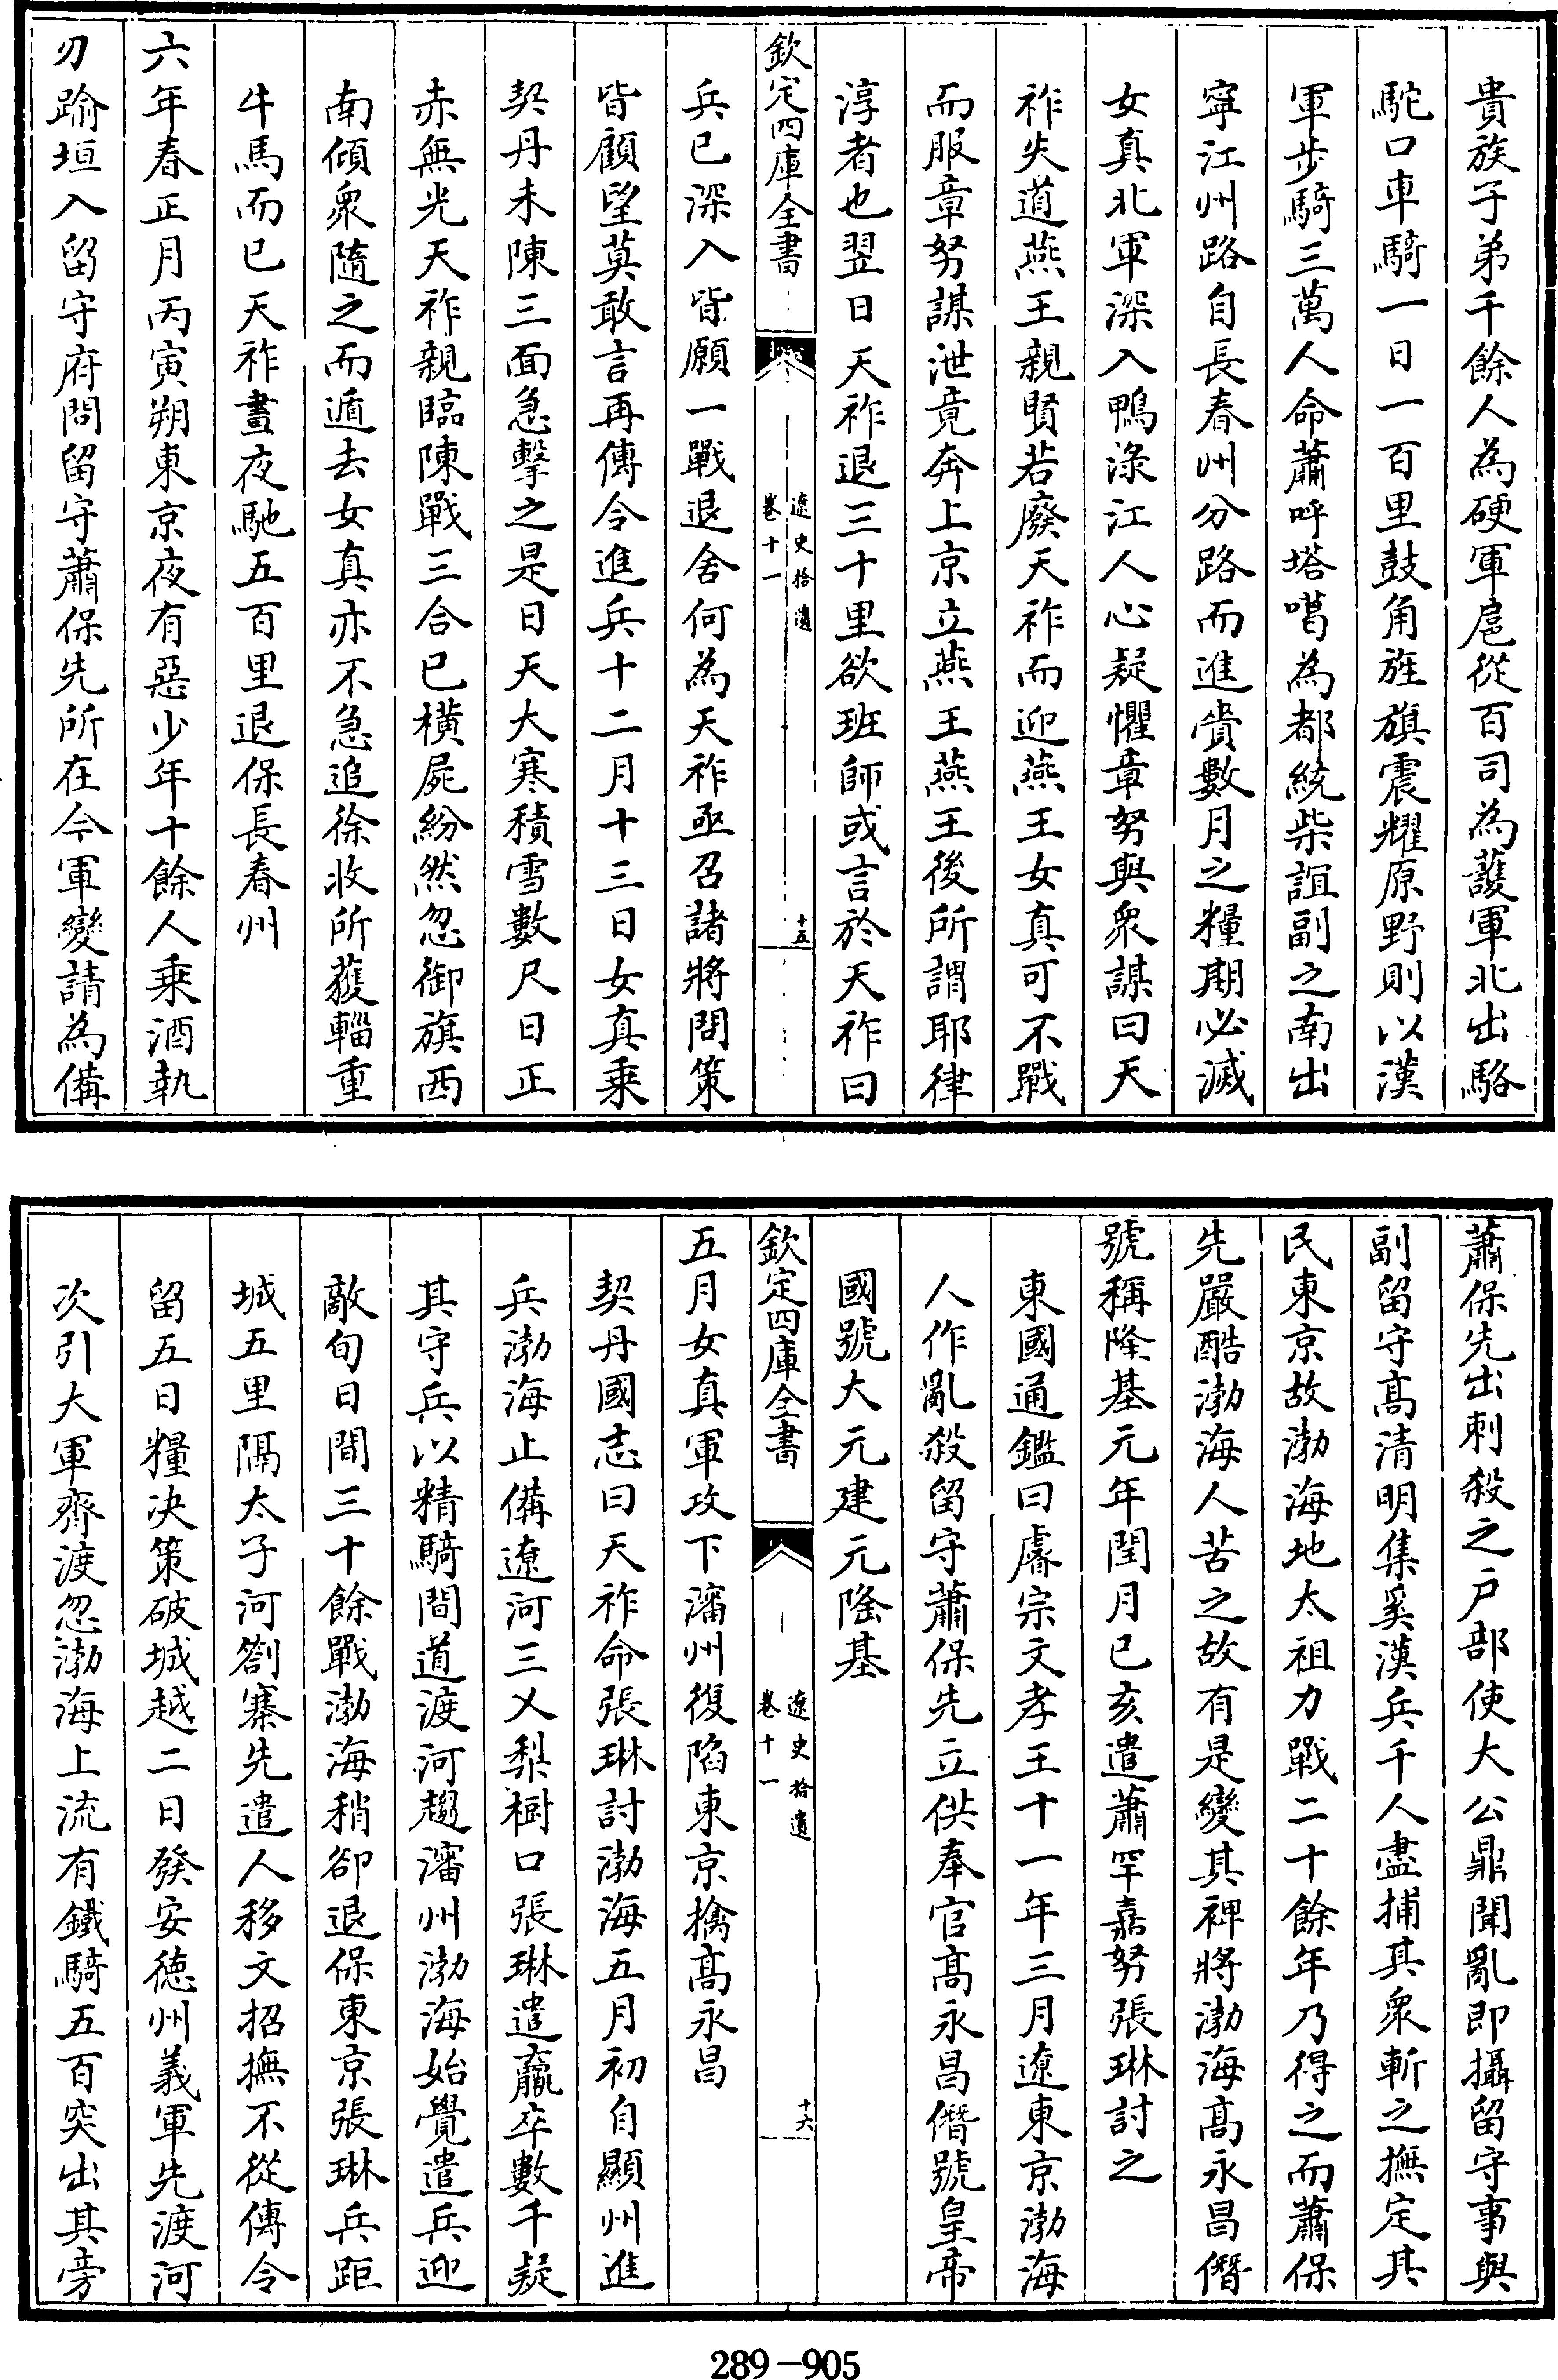 貴族子弟千餘人為硬軍扈從百司為護軍北出駱
駝口車騎一日一百里鼓角旌旗震耀原野則以漢
軍步騎三萬人命蕭呼塔噶為都統柴誼副之南出
寧江州路自長春州分路而進賫數月之糧期必滅
女真北軍深入鴨淥江人心疑懼章努與衆謀曰天
祚失道燕王親賢若廢天祚而迎燕王女真可不戰
而服章努謀泄竟奔上京立燕王燕王後所謂耶律
淳者也翌日天祚退三十里欲班師或言於天祚曰
欽定四庫全書
遼史拾遺
卷十一
十五
兵已深入皆願一戰退舍何為天祚亟召諸將問策
皆顧望莫敢言再傳令進兵十二月十三日女真乗
契丹未陳三面急擊之是日天大寒積雪數尺日正
赤無光天祚親臨陳戰三合已橫屍紛然忽御旗西
南傾衆隨之而遁去女真亦不急追徐收所獲輜重
牛馬而已天祚晝夜馳五百里退保長春州
六年春正月丙寅朔東京夜有惡少年十餘人乘酒執
刃踰垣入留守府問留守蕭保先所在今軍變請為備
蕭保先出刺殺之戶部使大公鼎聞亂即攝留守事與
副留守髙清明集奚漢兵千人盡捕其衆斬之撫定其
民東京故渤海地太祖力戰二十餘年乃得之而蕭保
先嚴酷渤海人苦之故有是變其裨將渤海髙永昌僭
號稱隆基元年閏月已亥遣蕭罕嘉努張琳討之
東國通鑑曰睿宗文孝王十一年三月遼東京渤海
人作亂殺留守蕭保先立供奉官髙永昌僭號皇帝
國號大元建元隆基
欽定四庫全書
遼史拾遺
卷十一
十六
五月女真軍攻下瀋州復陷東京擒髙永昌
契丹國志曰天祚命張琳討渤海五月初自顯州進
兵渤海止備遼河三乂梨樹口張琳遣羸卒數千疑
其守兵以精騎間道渡河趨瀋州渤海始覺遣兵迎
敵旬日間三十餘戰渤海稍卻退保東京張琳兵距
城五里隔太子河劄寨先遣人移文招撫不從傳令
留五日糧決策破城越二日發安徳州義軍先渡河
次引大軍齊渡忽渤海上流有鐵騎五百突出其旁
289-905